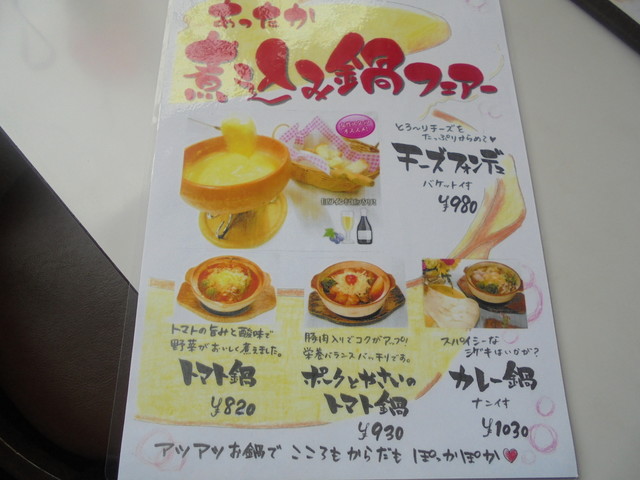 あったか
煮込み鍋フェアー
とろ〜りチーズを
たっぷりからめて♥
チーズフォンデュ
バケット付
¥980
トマトの旨みと酸味で
野菜がおいしく煮えました。
トマト鍋
¥820
豚肉入りでコクがアップ!
栄養バランスバッチリです。
ポークとやさいの
トマト鍋
¥930
スパイシーな
シゲキはいかが?
カレー鍋
ナン付
¥1030
アツアツお鍋で こころもからだも ぽっかぽか♥